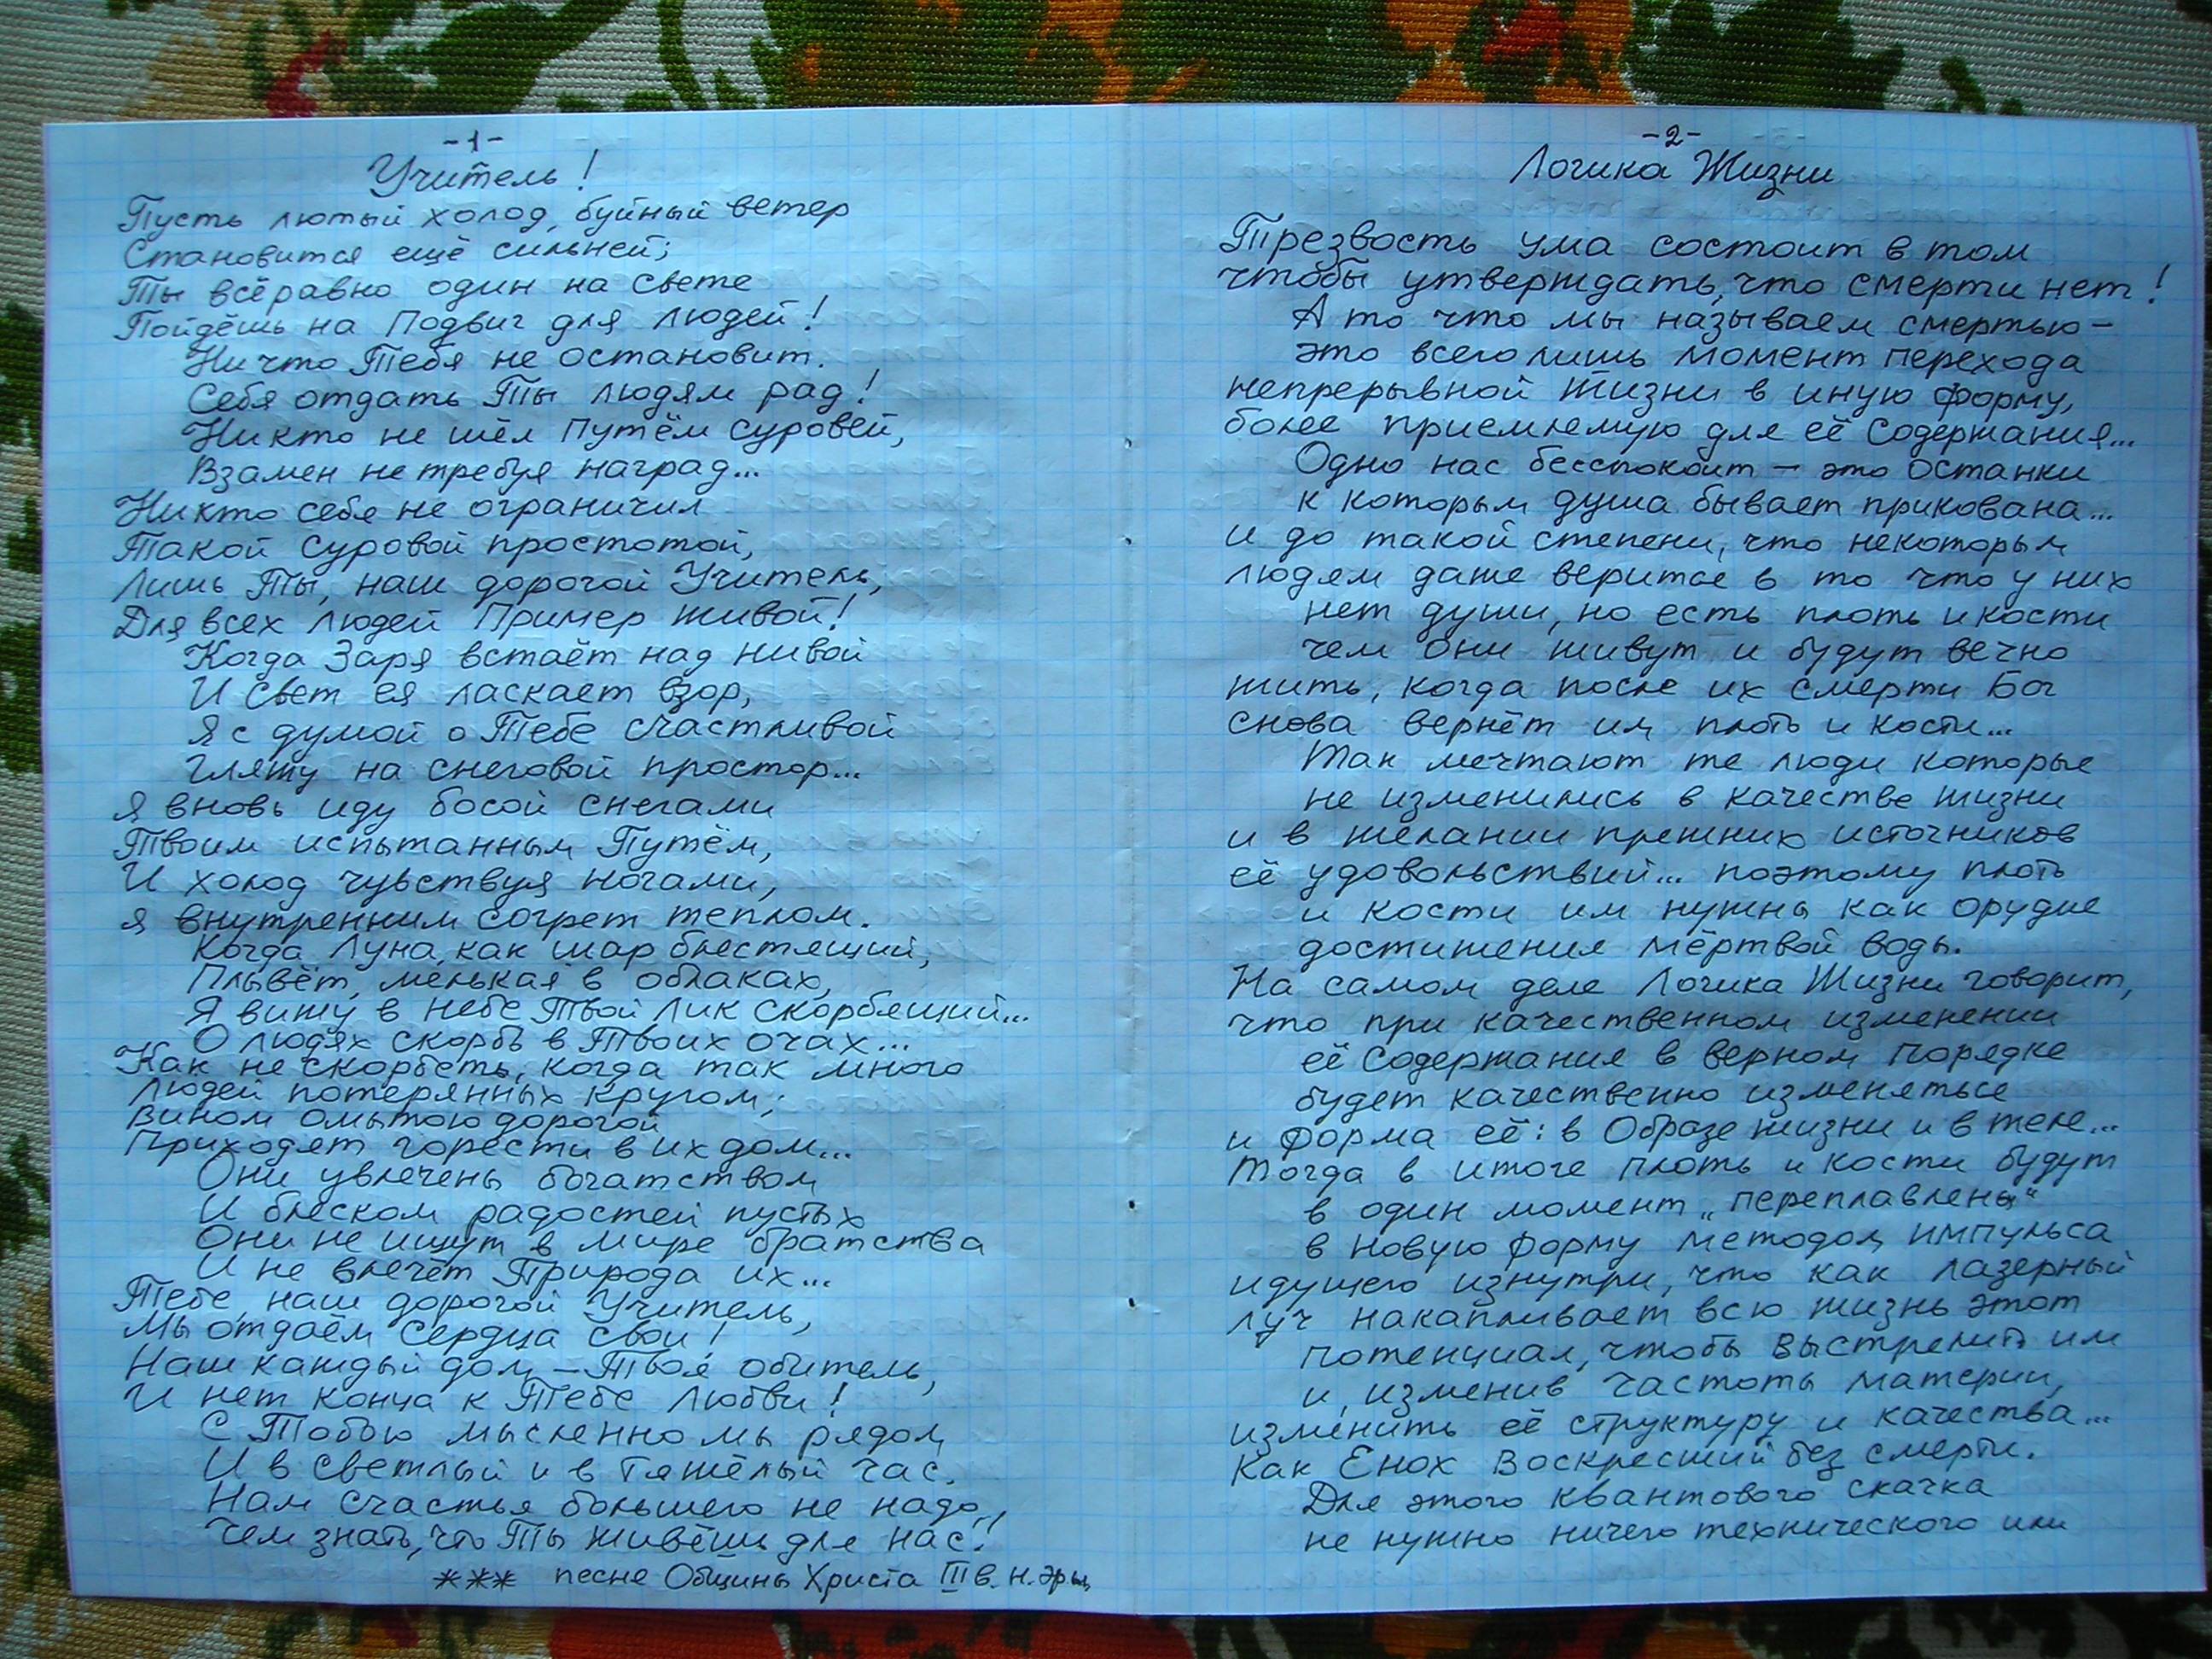 -1-
Учитель!
Пусть лютый холод, буйный ветер
Становится ещё сильней;
Ты всёравно один на свете
Пойдёшь на Подвиг для людей!
Ничто Тебя не остановит.
Себя отдать Ты людям рад!
Никто не шёл Путём суровей,
Взамен не требуя наград...
Никто себя не ограничил
Такой суровой простотой,
Лишь Ты, наш дорогой Учитель,
Для всех людей Пример живой!
Когда Заря встаёт над нивой
И свет ея ласкает взор,
Я с думой о Тебе счастливой
Гляжу на снеговой простор...
Я вновь иду босой снегами
Твоим испытанным Путём,
И холод чувствуя ногами,
Я внутренним согрет теплом.
Когда Луна, как шар блестящий,
Плывёт, мелькая в облаках,
Я вижу в небе Твой Лик скорбящий...
О людях скорбь в Твоих очах...
Как не скорбеть, когда так много
Людей потерянных кругом;
Вином омытою дорогой
Приходят горести в их дом...
Они увлечены богатством
И блеском радостей пустых
Они не ищут в мире братства
И не влечёт Природа их...
Тебе, наш дорогой Учитель,
Мы отдаём Сердца свои!
Наш каждый дом – Твоя обитель,
И нет конца к Тебе Любви!
С Тобою мысленно мы рядом
И в светлый и в тяжёлый час.
Нам счастья большего не надо,
Чем знать, что Ты живёшь для нас!
*** песня Общины Христа III в. н. эры
-2-
Логика Жизни
Трезвость ума состоит в том
чтобы утверждать, что смерти нет!
А то что мы называем смертью –
это всего лишь момент перехода
непрерывной Жизни в иную форму,
более приемлемую для её Содержания...
Одно нас бесспокоит – это останки
к которым душа бывает прикована...
и до такой степени, что некоторым
людям даже верится в то что у них
нет души, но есть плоть и кости
чем они живут и будут вечно
жить, когда после их смерти Бог
снова вернёт им плоть и кости...
Так мечтают те люди которые
не изменились в качестве жизни
и в желании прежних источников
её удовольствий... поэтому плоть
и кости им нужны как орудие
достижения мёртвой воды.
На самом деле Логика Жизни говорит,
что при качественном изменении
её Содержания в верном порядке
будет качественно изменяться
и форма её: в Образе жизни и в теле...
Тогда в итоге плоть и кости будут
в один момент „переплавлены“
в новую форму методом импульса
идущего изнутри, что как лазерный
луч накапливает всю жизнь этот
потенциал, чтобы выстрелить им
и, изменив частоты материи,
изменить её структуру и качества...
Как Енох Воскресший без смерти.
Для этого квантового скачка
не нужно ничего технического или